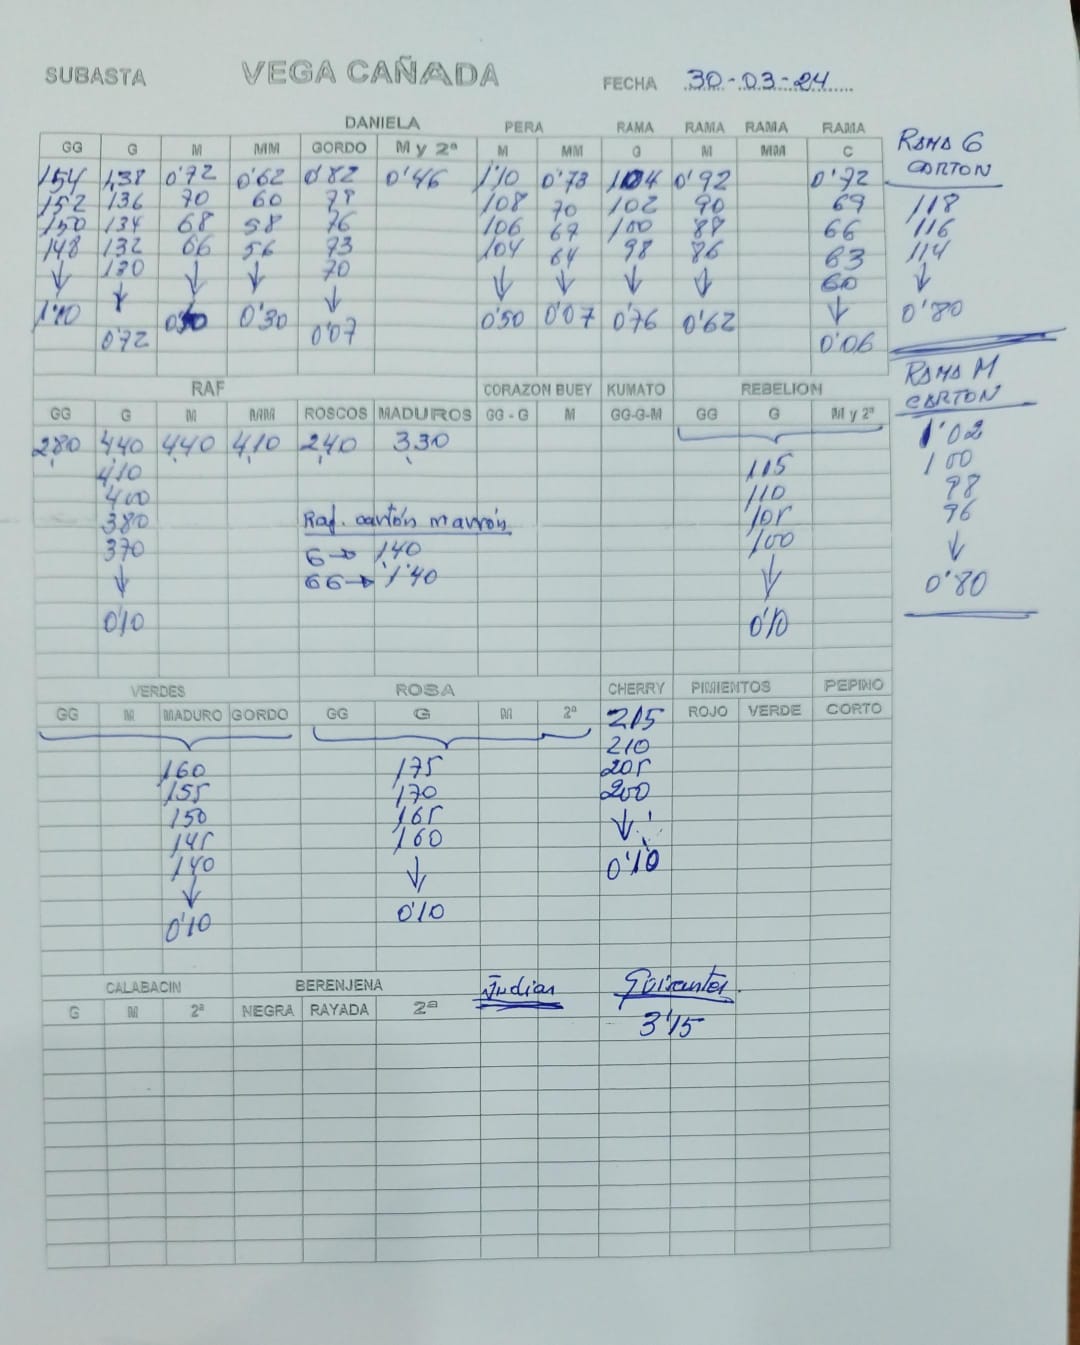 SUBASTA VEGA CAÑADA FECHA 30-03-24
DANIELA PERA RAMA RAMA RAMA RAMA
GG G M MM GORDO M y 2ª M MM G M MM C
154 1,38 0'72 0'62 0'82 0'46 1'10 0'73 104 0'92 0'72
152 136 70 60 79 108 70 102 90 69
150 134 68 58 76 106 67 100 88 66
148 132 66 56 73 104 64 98 86 63
↓ 130 ↓ ↓ 70 ↓ ↓ ↓ ↓ 60
1'10 ↓ 0'30 ↓ 0'50 0'07 0'76 0'62 ↓
0'72 0'07 0'06
RAMA G
CARTON
118
116
114
↓
0'80
RAMA M
CARTON
1'02
100
98
96
↓
0'80
RAF CORAZON BUEY KUMATO REBELION
GG G M MM ROSCOS MADUROS GG - G M GG-G-M GG G M y 2ª
2,80 4,40 4,40 4,10 2,40 3,30
4,10 115
400 110
380 Raf. cartón marrón 105
370 G → 1,40 100
↓ GG → 1'40 ↓
0'10 0'10
VERDES ROSA CHERRY PIMIENTOS PEPINO
GG M MADURO GORDO GG G M 2ª 215 ROJO VERDE CORTO
210
160 175 205
155 170 200
150 165 ↓
145 160 0'10
140 ↓
↓ 0'10
0'10
CALABACIN BERENJENA Judias Guisantes.
G M 2ª NEGRA RAYADA 2ª 3'15